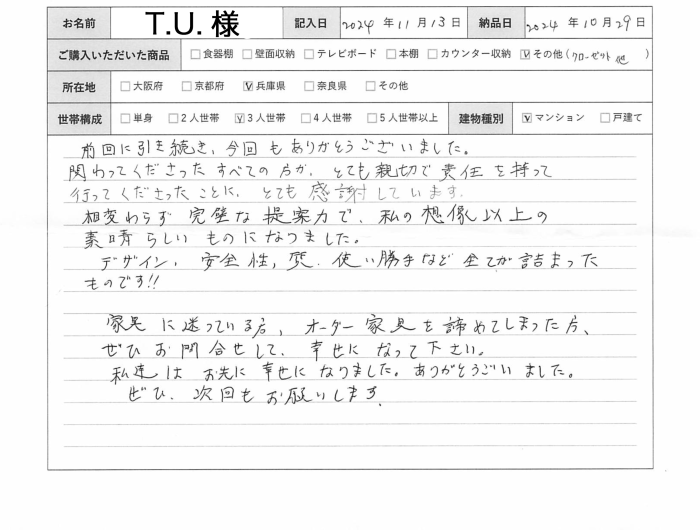 お名前 T.U. 様 記入日 2024 年 11 月 13 日 納品日 2024 年 10 月 29 日
ご購入いただいた商品 □食器棚 □壁面収納 □テレビボード □本棚 □カウンター収納 ☑その他(クローゼット 他 )
所在地 □大阪府 □京都府 ☑兵庫県 □奈良県 □その他
世帯構成 □単身 □2人世帯 ☑3人世帯 □4人世帯 □5人世帯以上 建物種別 ☑マンション □戸建て
前回に引き続き、今回もありがとうございました。
関わってくださったすべての方が、とても親切で責任を持って
行ってくださったことに、とても感謝しています。
相変わらず完璧な提案力で、私の想像以上の
素晴らしいものになりました。
デザイン、安全性、質、使い勝手など全てが詰まった
ものです!!
家具に迷っている方、オーダー家具を諦めてしまった方、
ぜひお問合せして、幸せになって下さい。
私達はお先に幸せになりました。ありがとうごいいました。
ぜひ、次回もお願いします。